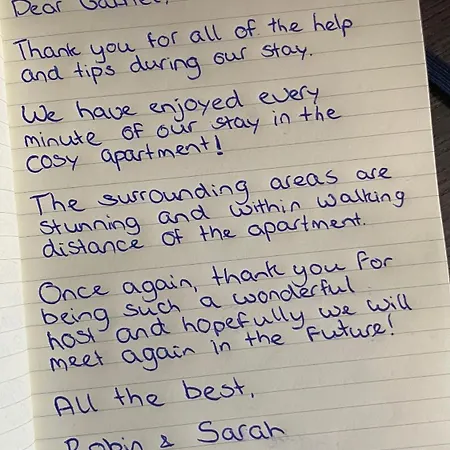 Dear
Thank you for all of the help
and tips during our stay.
We have enjoyed every
minute of our stay in the
cosy apartment!
The surrounding areas are
stunning and within walking
distance of the apartment.
Once again, thank you for
being such a wonderful
host and hopefully we will
meet again in the future!
All the best,
Robin & Sarah